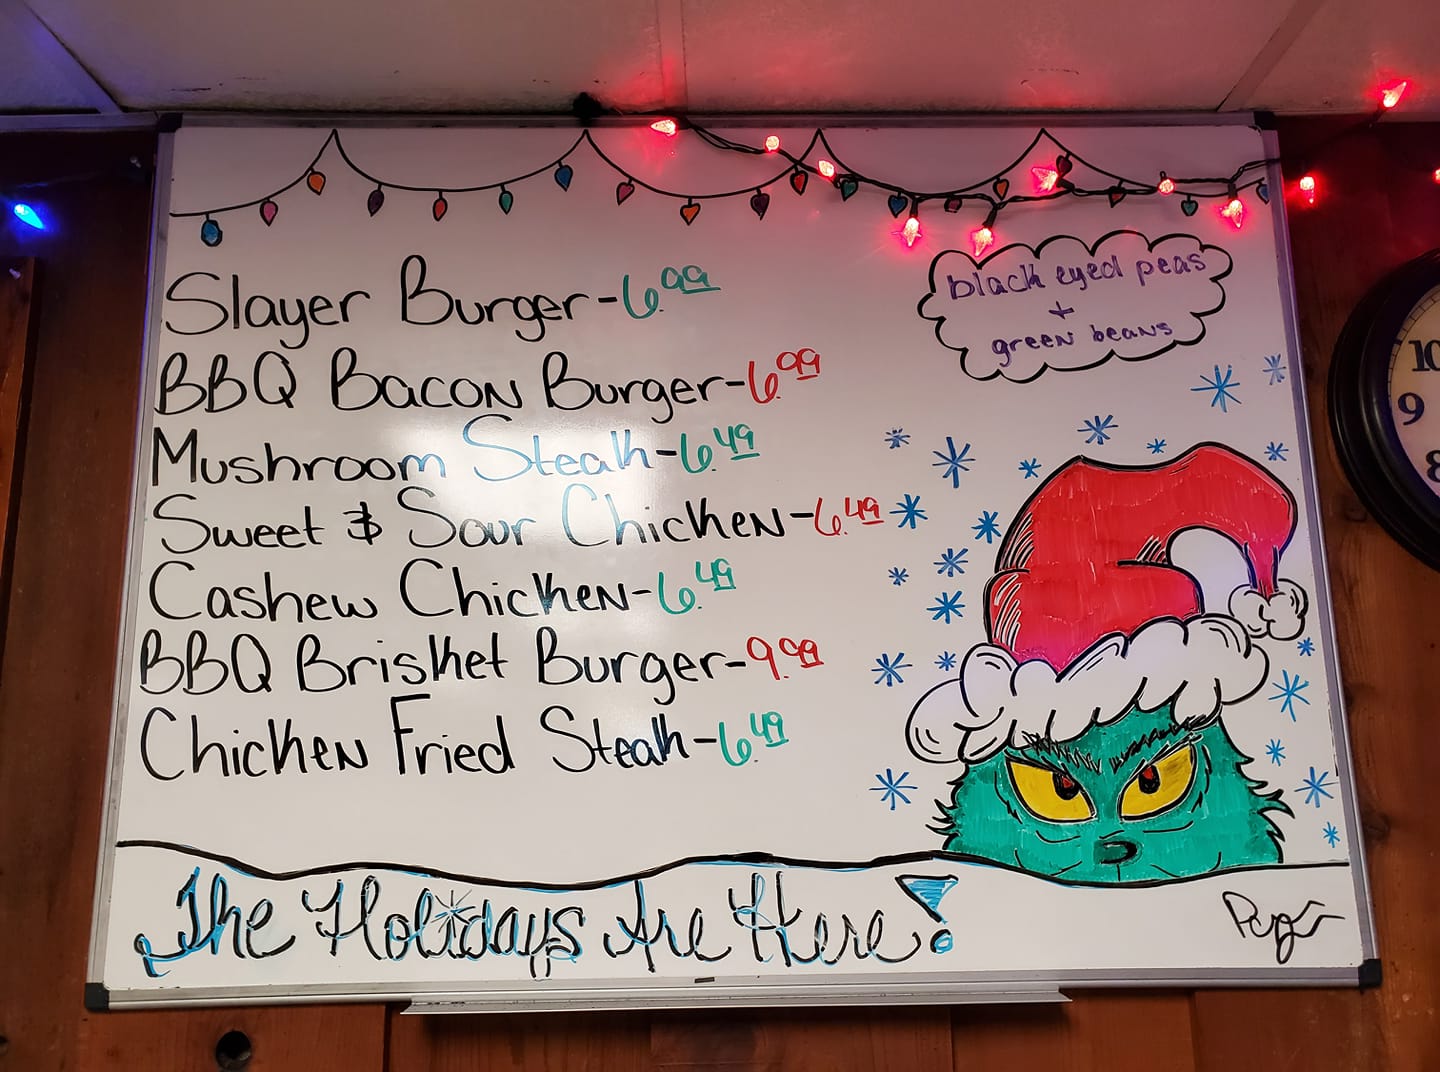 Slayer Burger-6.99
BBQ Bacon Burger-6.99
Mushroom Steak-6.49
Sweet & Sour Chicken-6.49
Cashew Chicken-6.49
BBQ Brisket Burger-9.99
Chicken Fried Steak-6.49
black eyed peas
+
green beans
The Holidays Are Here!
10
9
8